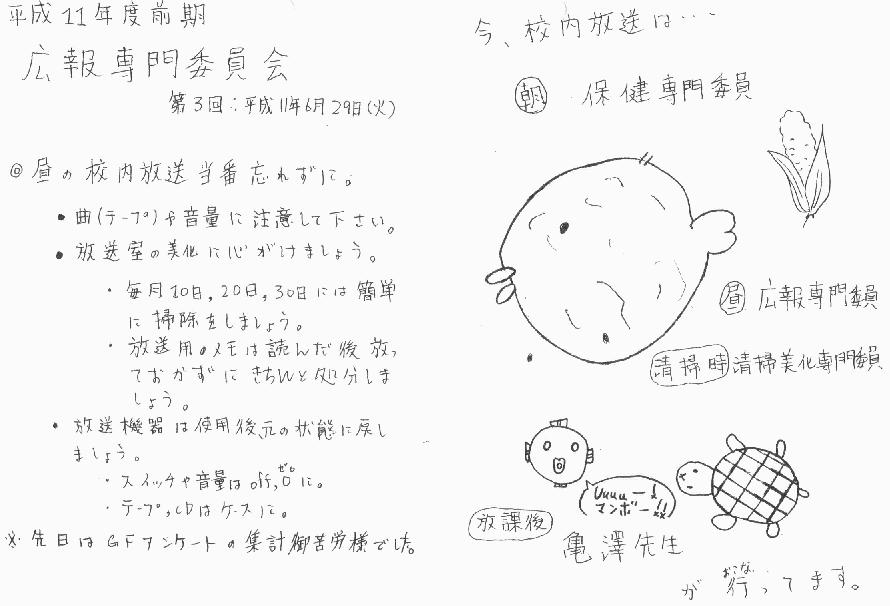 平成11年度前期
広報専門委員会
第3回:平成11年6月29日(火)
◎昼の校内放送当番忘れずに。
・曲(テープ)や音量に注意して下さい。
・放送室の美化に心がけましょう。
・毎月10日,20日,30日には簡単
に掃除をしましょう。
・放送用のメモは読んだ後放っ
ておかずにきちんと処分しま
しょう。
・放送機器は使用後、元の状態に戻し
ましょう。
・スイッチや音量はoff,0に。
ゼロ
・テープ,CDはケースに。
※先日はGFアンケートの集計御苦労様でした。
今、校内放送は…
朝 保健専門委員
昼 広報専門委員
清掃時 清掃美化専門委員
Uuuu-!
マンボー!!
放課後
亀澤先生
おこな
が行ってます。